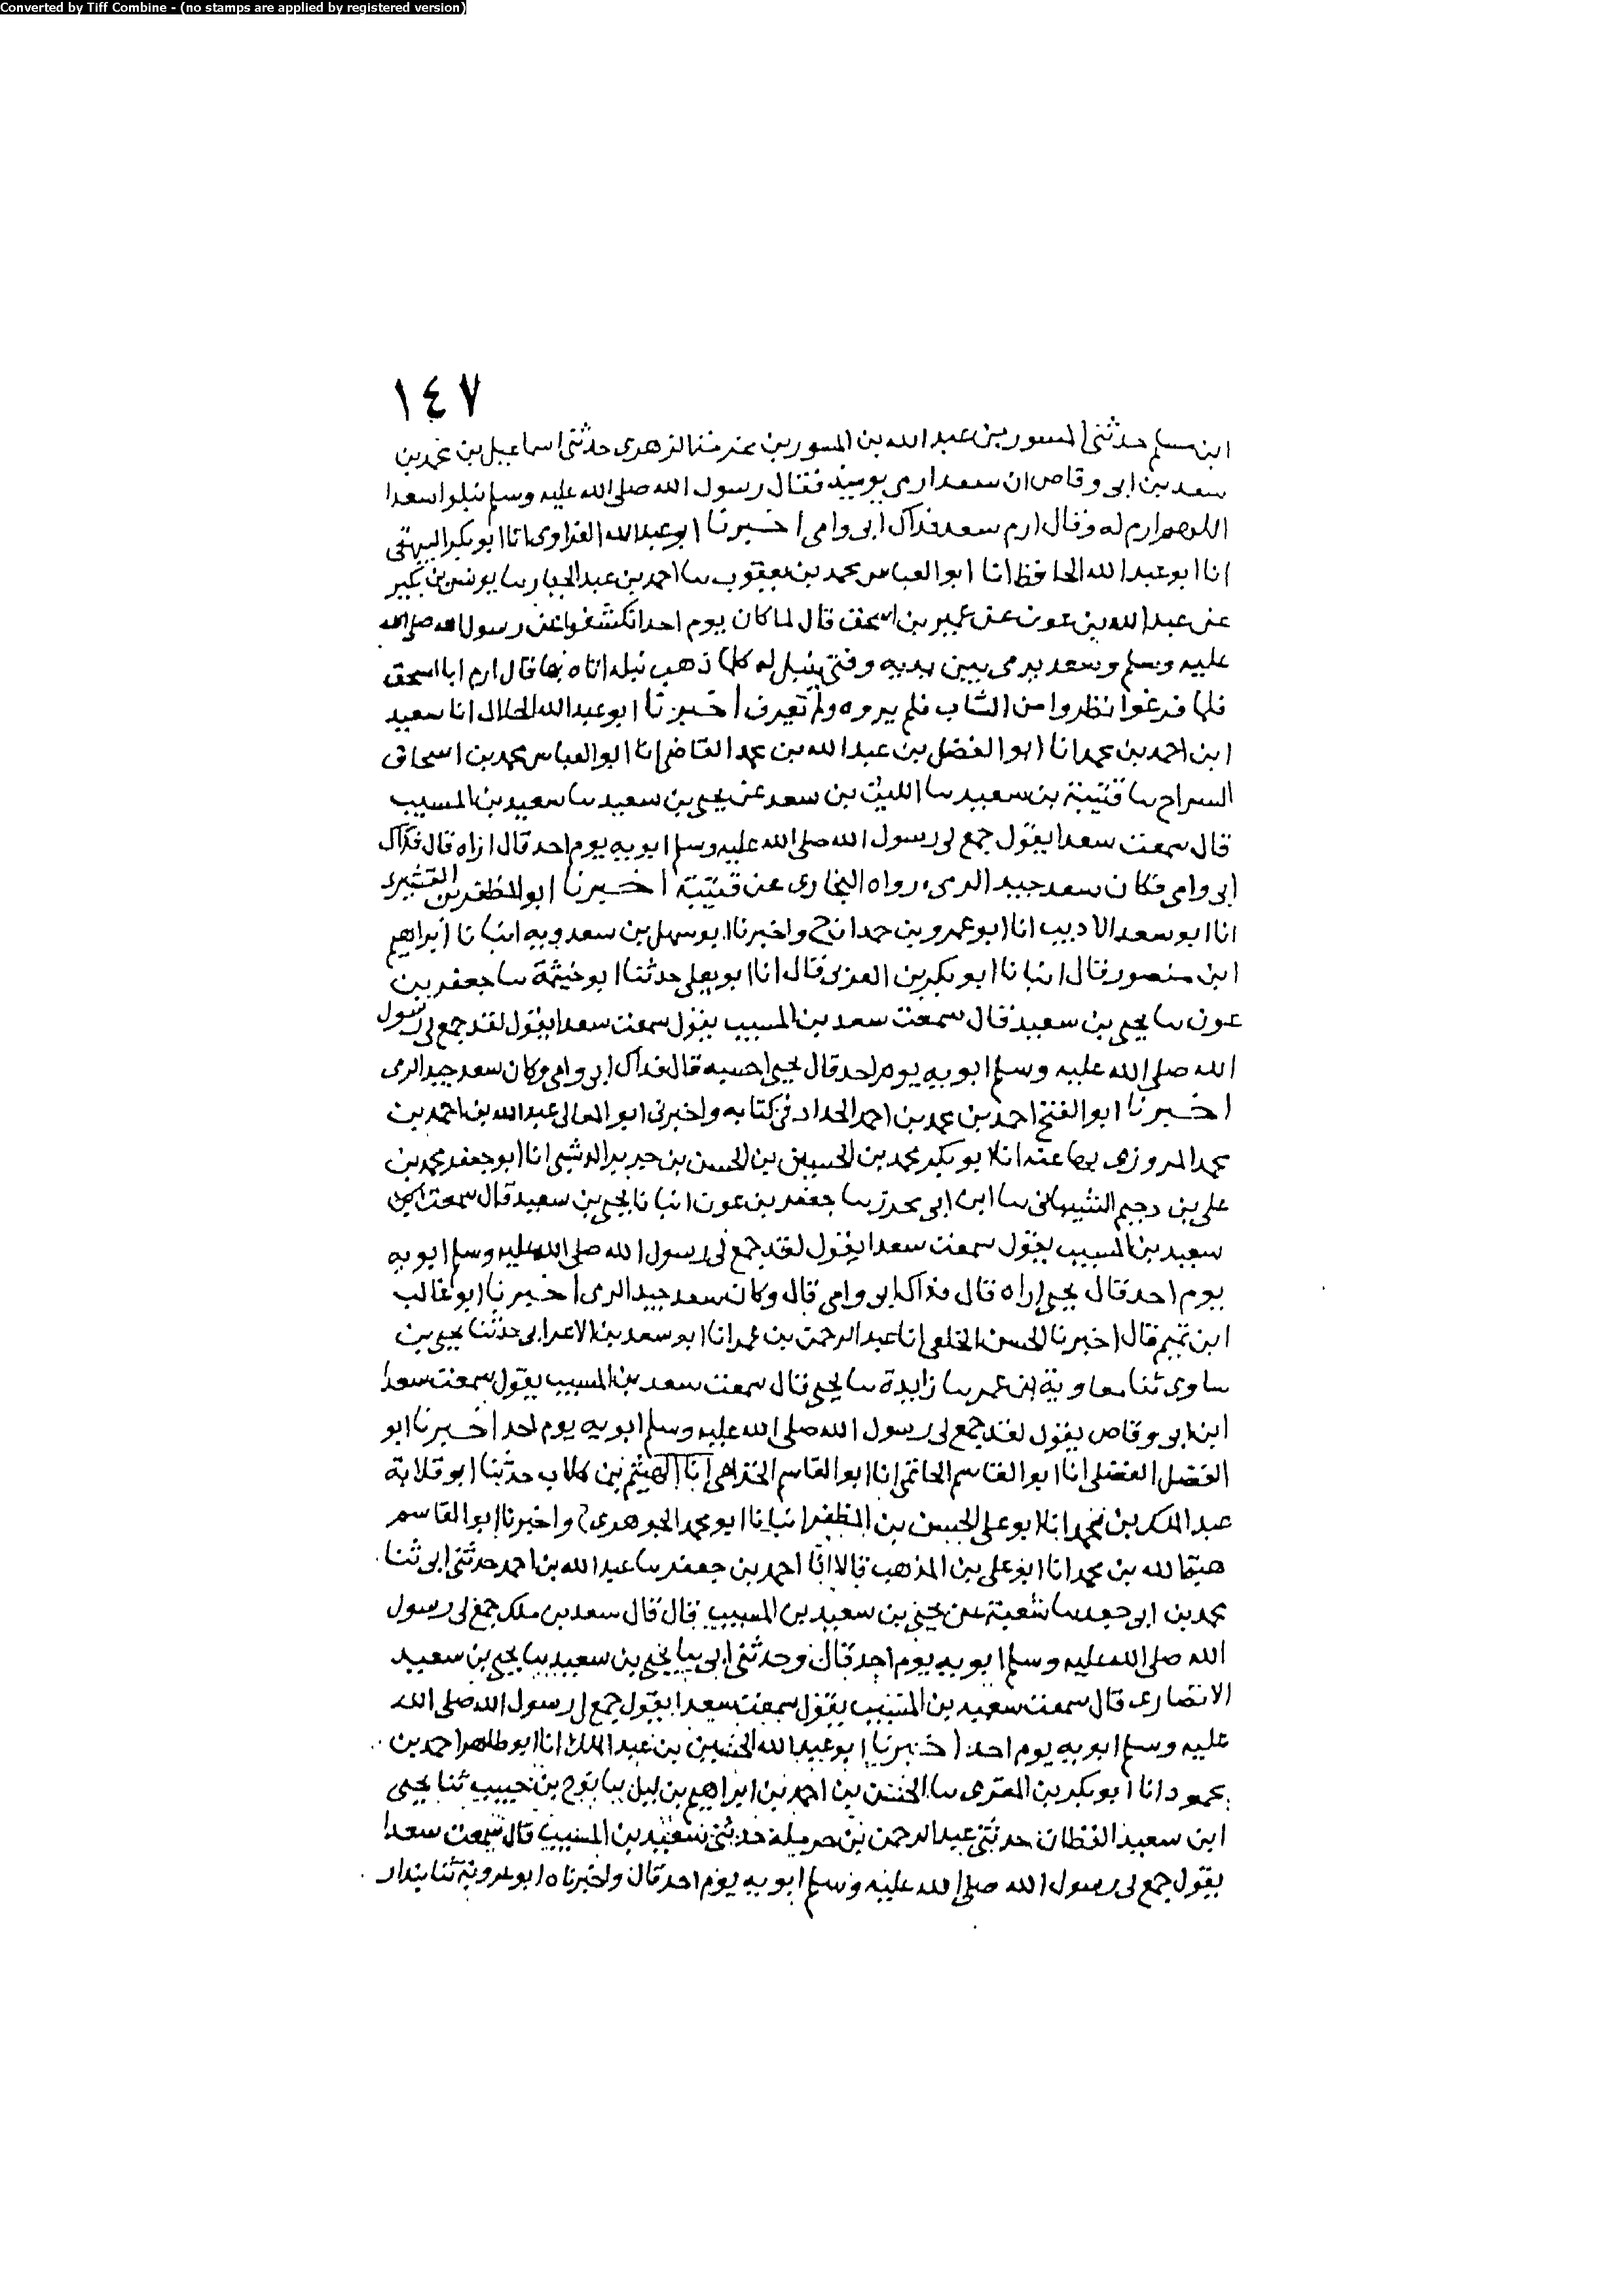 Converted by Tiff Combine - (no stamps are applied by registered version)
١٤٧
ابن مسلم حدثني المسور بن عبد الله بن المسور بن مخرمة الزهري حدثني اسماعيل بن محمد بن
سعد بن ابي وقاص ان سعدا رمى يوميذ فقال رسول الله صلى الله عليه وسلم نبلوا سعدا
اللهم ارم له وقال ارم سعد فداك ابي وامي اخبرنا ابو عبد الله الفراوي انا ابو بكر البيهقي
انا ابو عبد الله الحافظ انا ابو العباس محمد بن يعقوب سا احمد بن عبد الجبار سا يونس بن بكير
عن عبد الله بن عون عن عمير بن اسحق قال لما كان يوم احد انكشفوا عن رسول الله صلى الله
عليه وسلم وسعد يرمي بين يديه وفتى ينبل له كلما ذهب نبله اتاه بها قال ارم ابا اسحق
فلما فرغوا نظروا من الشاب فلم يروه ولم تعرف اخبرنا ابو عبد الله الخلال انا سعيد
ابن احمد بن محمد انا ابو الفضل بن عبد الله بن محمد القاضي انا ابو العباس محمد بن اسحاق
السراج سا قتيبة بن سعيد سا الليث بن سعد عن يحيى بن سعيد سا سعيد بن المسيب
قال سمعت سعدا يقول جمع لي رسول الله صلى الله عليه وسلم ابويه يوم احد قال اراه قال فداك
ابي وامي فكان سعد جيد الرمي رواه البخاري عن قتيبة اخبرنا ابو المظفر بن القشيري
انا ابو سعد الاديب انا ابو عمرو بن حمدان ح واخبرنا ابو سهل بن سعدويه انبانا ابراهيم
ابن منصور قال انبانا ابو بكر بن المقري قال انا ابو يعلى حدثنا ابو خيثمة سا جعفر بن
عون سا يحيى بن سعيد قال سمعت سعد بن المسيب يقول سمعت سعدا يقول لقد جمع لي رسول
الله صلى الله عليه وسلم ابويه يوم احد قال يحيى احسبه قال فداك ابي وامي وكان سعد جيد الرمي
اخبرنا ابو الفتح احمد بن محمد بن احمد الحداد في كتابه واخبرني ابو المعالي عبد الله بن احمد بن
محمد المروزي بها عنه انا ابو بكر محمد بن الحسين بن الحسن بن جرير الدشتي انا ابو جعفر محمد بن
علي بن دحيم الشيباني سا ابن ابي سا جعفر بن عون انبانا يحيى بن سعيد قال سمعت
سعيد بن المسيب يقول سمعت سعدا يقول لقد جمع لي رسول الله صلى الله عليه وسلم ابويه
يوم احد قال يحيى اراه قال فداك ابي وامي قال وكان سعد جيد الرمي اخبرنا ابو غالب
ابن تميم قال اخبرنا الحسن الخلعي انا عبد الرحمن بن عمر انا ابو سعد بن الاعرابي حدثنا يحيى بن
ساوى ثنا معاوية بن عمر سا زايدة سا يحيى قال سمعت سعد بن المسيب يقول سمعت سعدا
ابن ابي وقاص يقول لقد جمع لي رسول الله صلى الله عليه وسلم ابويه يوم احد اخبرنا ابو
الفضل الفضلي انا ابو القاسم انا ابو القاسم الخزاعي انا الهيثم بن كلاب حدثنا ابو قلابة
عبد الملك بن محمد انا ابو علي الحسن بن المظفر انبانا ابو محمد الجوهري ح واخبرنا ابو القاسم
هبة الله بن محمد انا ابو علي بن المذهب قالا انا احمد بن جعفر سا عبد الله بن احمد حدثني ابي ثنا
محمد بن ابي جعفر سا شعبة عن يحيى بن سعيد بن المسيب قال قال سعد بن ملك جمع لي رسول
الله صلى الله عليه وسلم ابويه يوم احد قال وحدثني ابي سا يحيى بن سعيد سا يحيى بن سعيد
الانصاري قال سمعت سعيد بن المسيب يقول سمعت سعدا يقول جمع لي رسول الله صلى الله
عليه وسلم ابويه يوم احد اخبرنا ابو عبد الله الحسين بن عبد الملك انا ابو طاهر احمد بن
محمود انا ابو بكر بن المقري سا الحسن بن احمد بن ابراهيم بن سا نوح بن حبيب ثنا يحيى
ابن سعيد القطان حدثني عبد الرحمن بن حرملة حدثني سعيد بن المسيب قال سمعت سعدا
يقول جمع لي رسول الله صلى الله عليه وسلم ابويه يوم احد قال واخبرناه ابو عروبة ثنا بندار